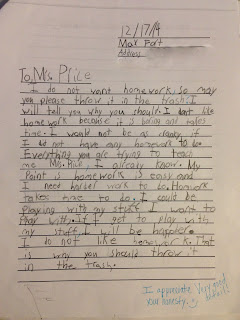 12/17/14
Max
To Mrs. Price
I do not want homework. So may
you please throw it in the trash. I
will tell you why you should. I don't like
homework because it is boring and takes
time. I would not be as cranky if
I did not have any homework to do.
Everything you are trying to teach
me Mrs. Price I already know. My
Point is homework is easy and
I need harder work to do. Homework
takes time to do. I could be
playing with my stuff I want to
play with. If I get to play with
my stuff I will be happier.
I do not like homework. That
is why you should throw it
in the trash.
I appreciate your honesty. :)
Very good details!